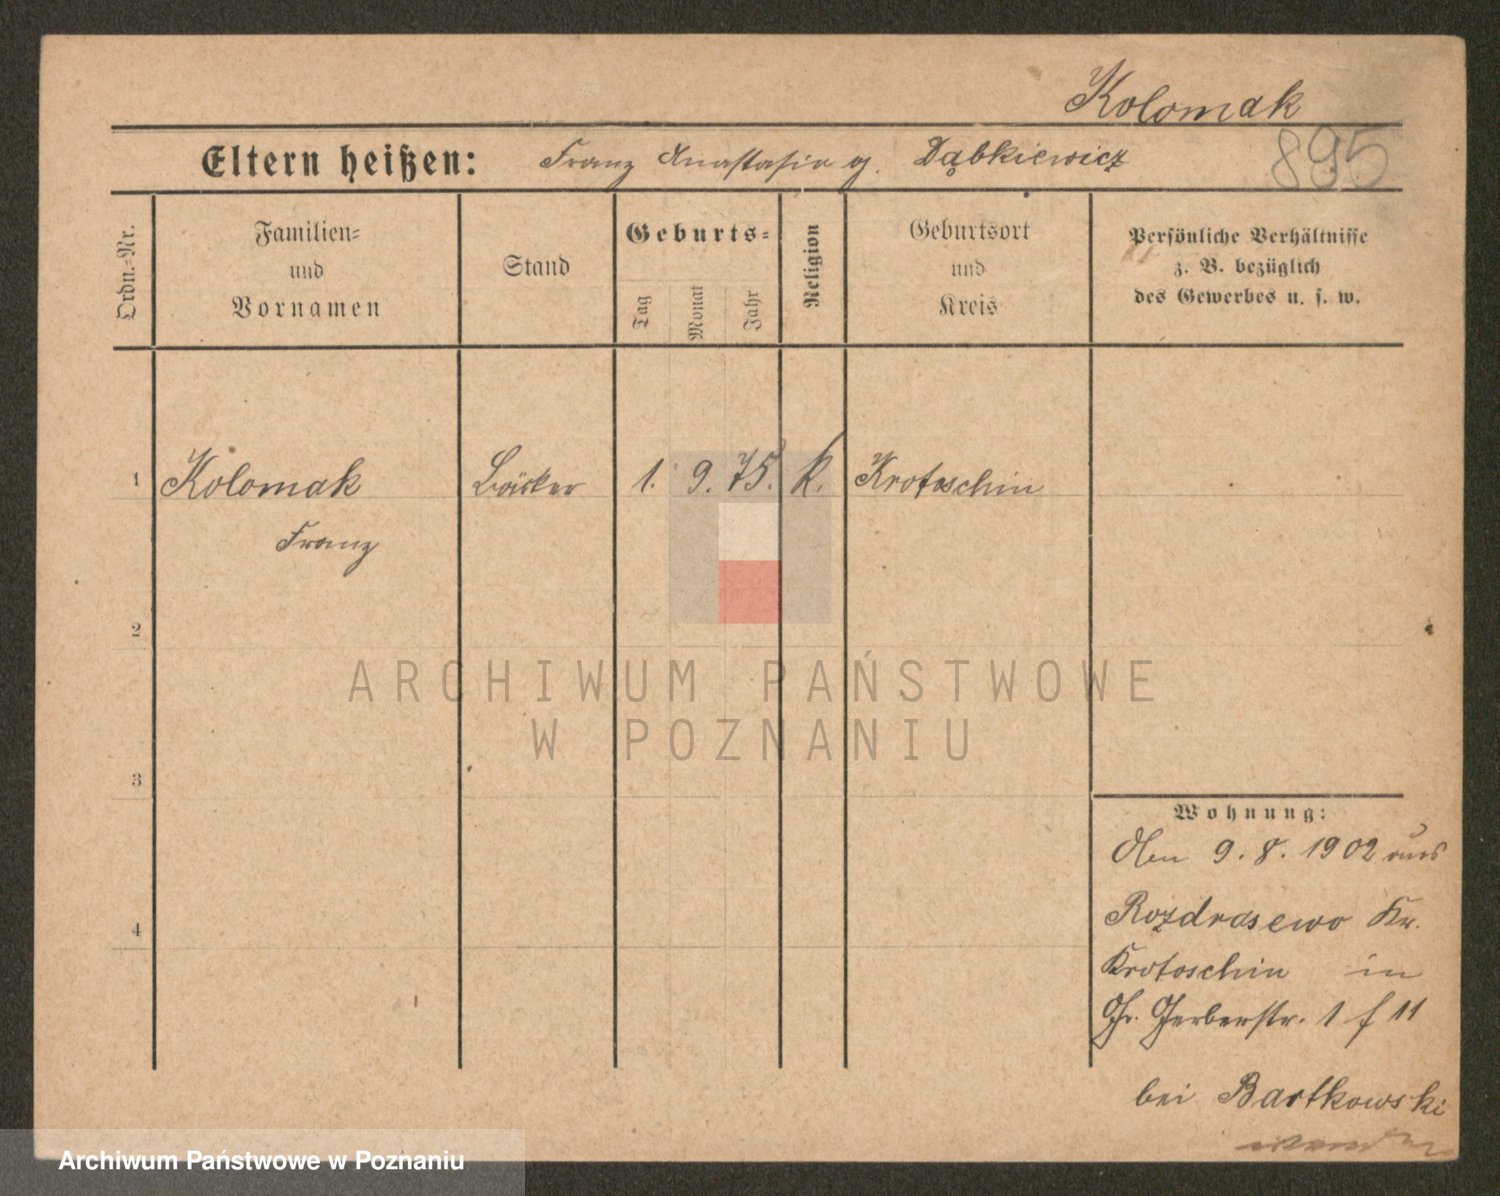 Kolomak
895
Eltern heißen: Franz Anastasia g. Dąbkiewicz
Ordn.-Nr.
Familien-
und
Vornamen
Stand
Geburts-
Tag
Monat
Jahr
Religion
Geburtsort
und
Kreis
Persönliche Verhältnisse
z. B. bezüglich
des Gewerbes u. s. w.
1 Kolomak Bäcker 1. 9. 75. k. Krotoschin
Franz
2
3
4
Wohnung:
Den 9. 8. 1902 aus
Rozdrasewo Kr.
Krotoschin in
Gr. Gerberstr. 1 f 11
bei Bartkowski
ARCHIWUM PAŃSTWOWE
W POZNANIU
Archiwum Państwowe w Poznaniu